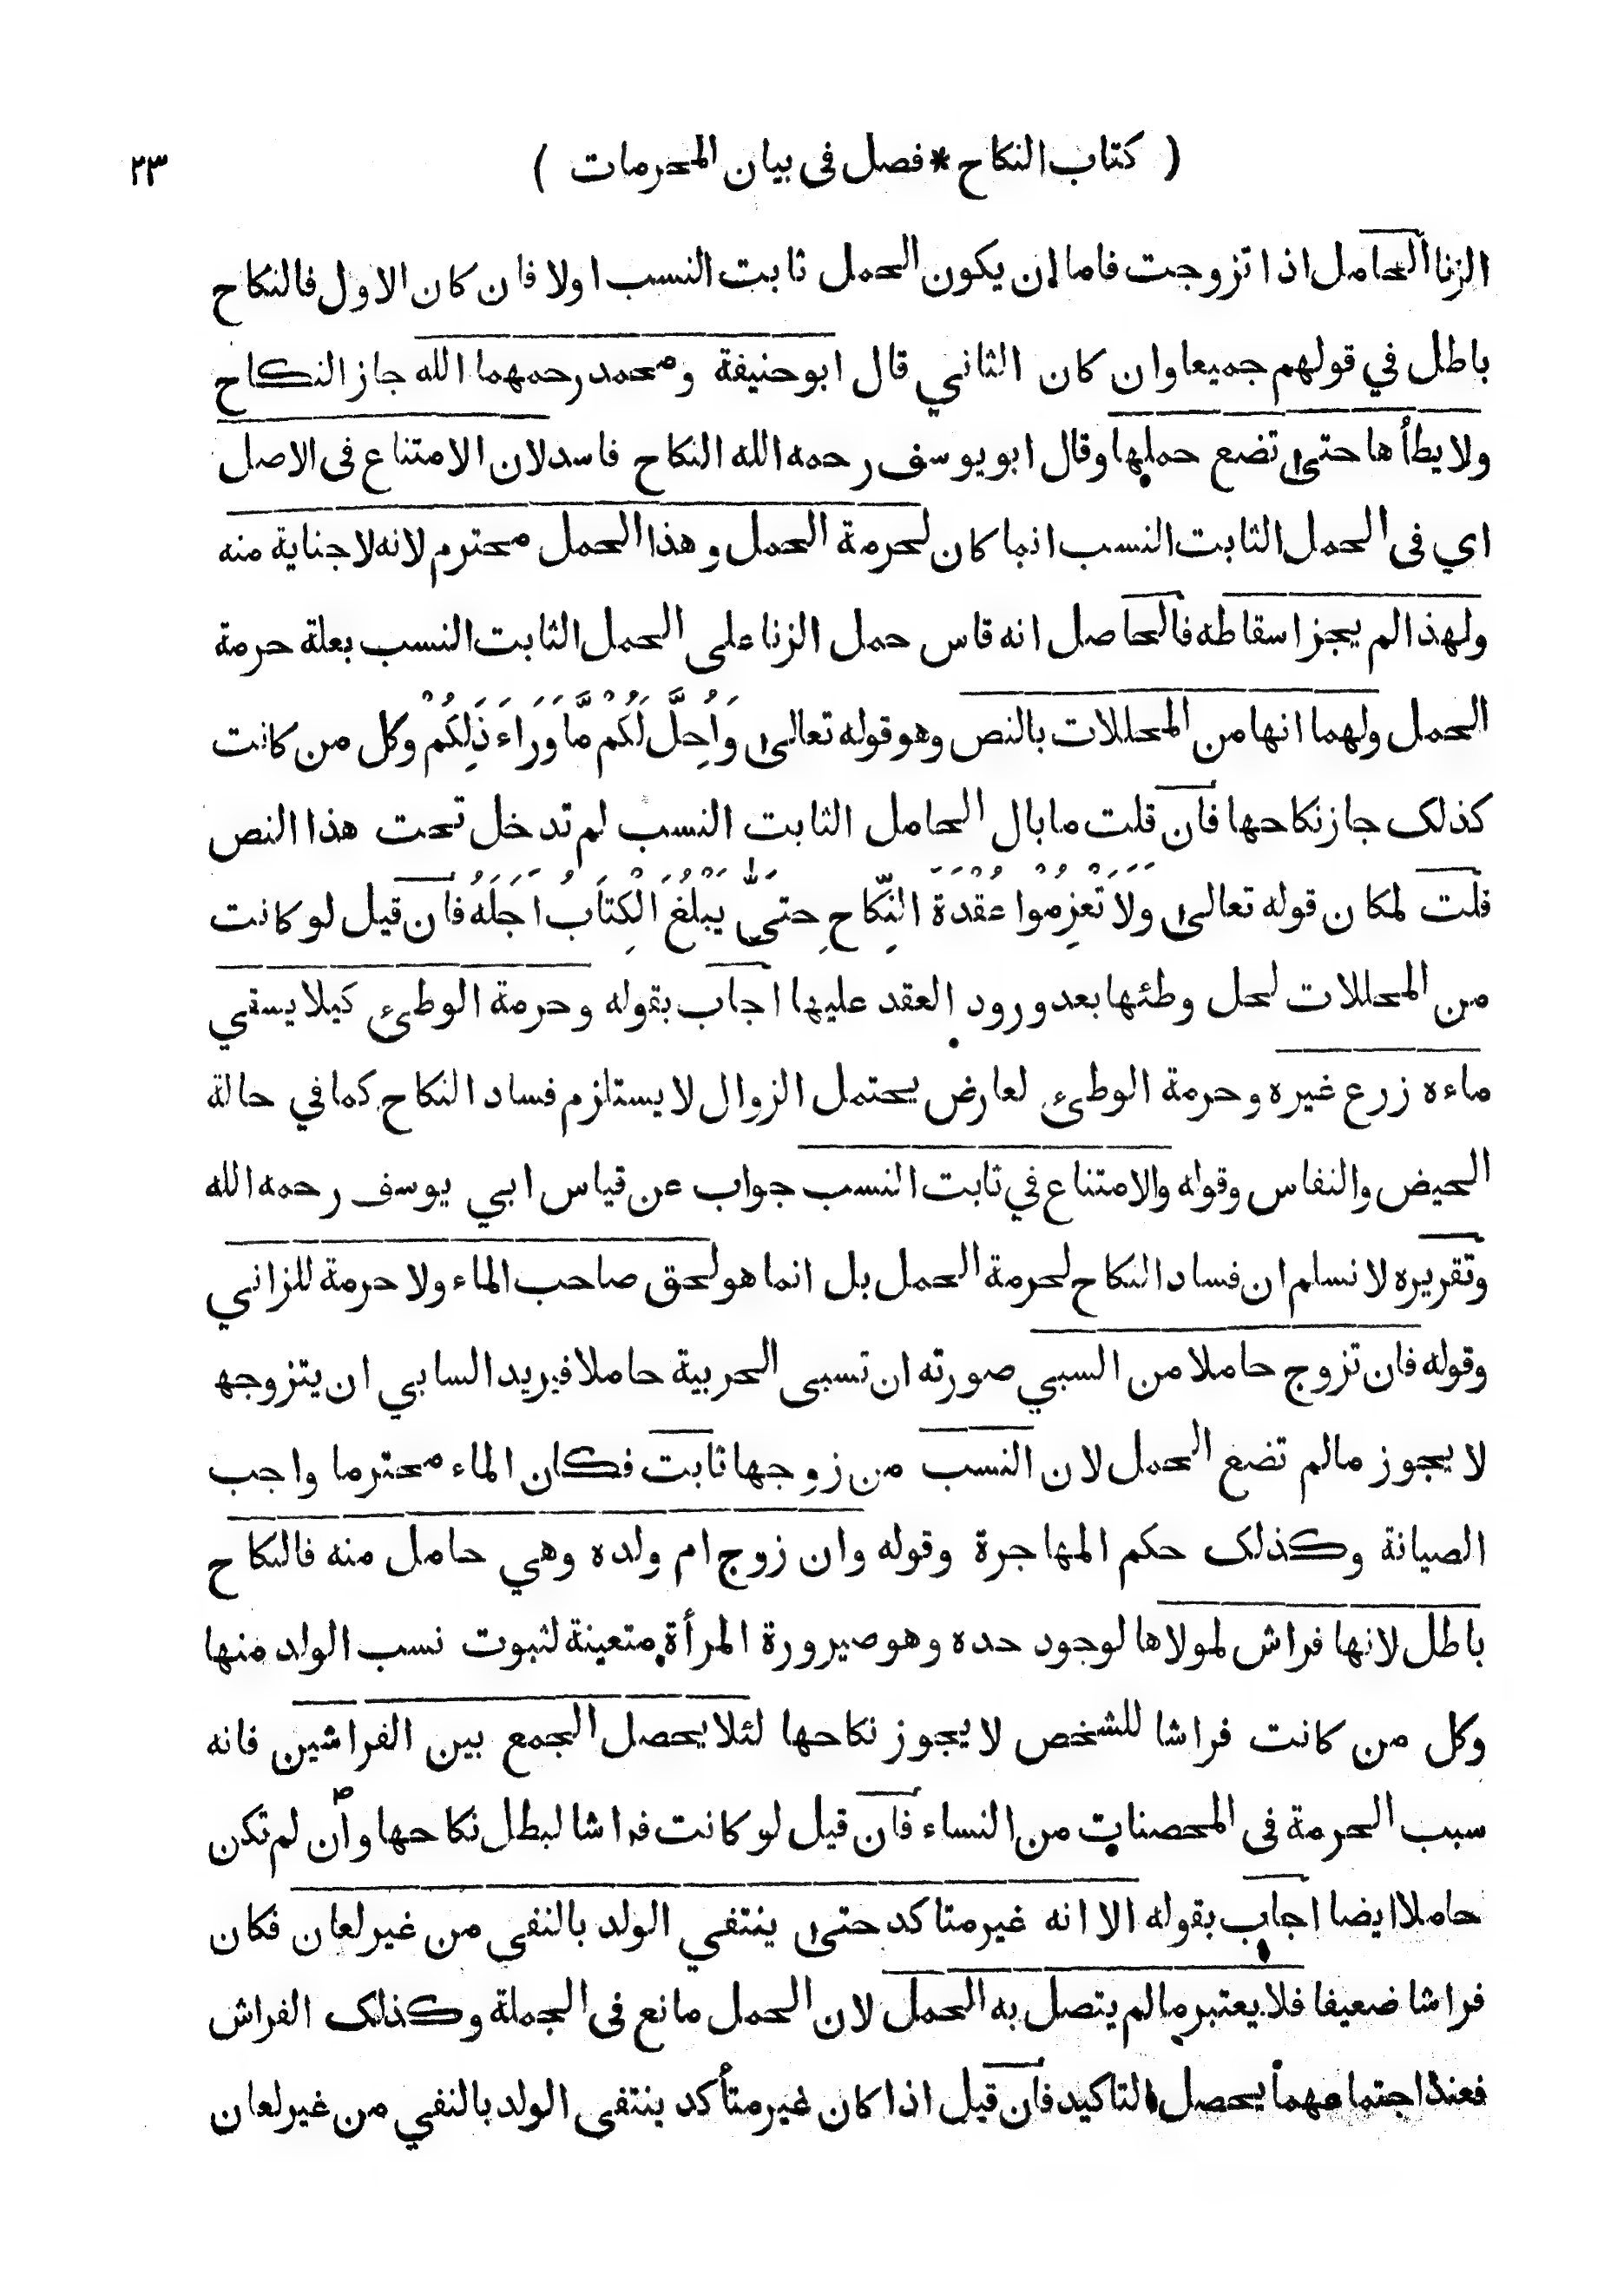 ( كتاب النكاح * فصل فى بيان المحرمات ) ٢٣
الزنا الحامل اذا تزوجت فاما ان يكون الحمل ثابت النسب اولا فان كان الاول فالنكاح
باطل في قولهم جميعا وان كان الثاني قال ابوحنيفة ومحمد رحمهما الله جاز النكاح
ولا يطأها حتى تضع حملها وقال ابو يوسف رحمه الله النكاح فاسد لان الامتناع فى الاصل
اي فى الحمل الثابت النسب انما كان لحرمة الحمل وهذا الحمل محترم لانه لا جناية منه
ولهذا لم يجز اسقاطه فالحاصل انه قاس حمل الزنا على الحمل الثابت النسب بعلة حرمة
الحمل ولهما انها من المحللات بالنص وهو قوله تعالى وَاُحِلَّ لَكُمْ مَّا وَرَاءَ ذٰلِكُمْ وكل من كانت
كذلك جاز نكاحها فان قلت ما بال الحامل الثابت النسب لم تدخل تحت هذا النص
قلت لمكان قوله تعالى وَلَا تَعْزِمُوا عُقْدَةَ النِّكَاحِ حتىّٰ يَبْلُغَ الْكِتَابُ اَجَلَهُ فان قيل لو كانت
من المحللات لحل وطئها بعد ورود العقد عليها اجاب بقوله وحرمة الوطئ كيلا يسقي
ماءه زرع غيره وحرمة الوطئ لعارض يحتمل الزوال لا يستلزم فساد النكاح كما في حالة
الحيض والنفاس وقوله والامتناع في ثابت النسب جواب عن قياس ابي يوسف رحمه الله
وتقريره لا نسلم ان فساد النكاح لحرمة الحمل بل انما هو لحق صاحب الماء ولا حرمة للزاني
وقوله فان تزوج حاملا من السبي صورته ان تسبى الحربية حاملا فيريد السابي ان يتزوجها
لا يجوز مالم تضع الحمل لان النسب من زوجها ثابت فكان الماء محترما واجب
الصيانة وكذلك حكم المهاجرة وقوله وان زوج ام ولده وهي حامل منه فالنكاح
باطل لانها فراش لمولاها لوجود حده وهو صيرورة المرأة متعينة لثبوت نسب الولد منها
وكل من كانت فراشا للشخص لا يجوز نكاحها لئلا يحصل الجمع بين الفراشين فانه
سبب الحرمة فى المحصنات من النساء فان قيل لو كانت فراشا لبطل نكاحها وان لم تكن
حاملا ايضا اجاب بقوله الا انه غير متاكد حتى ينتفي الولد بالنفى من غير لعان فكان
فراشا ضعيفا فلا يعتبر مالم يتصل به الحمل لان الحمل مانع فى الجملة وكذلك الفراش
فعند اجتماعهما يحصل التاكيد فان قيل اذا كان غير متأكد ينتفى الولد بالنفي من غير لعان